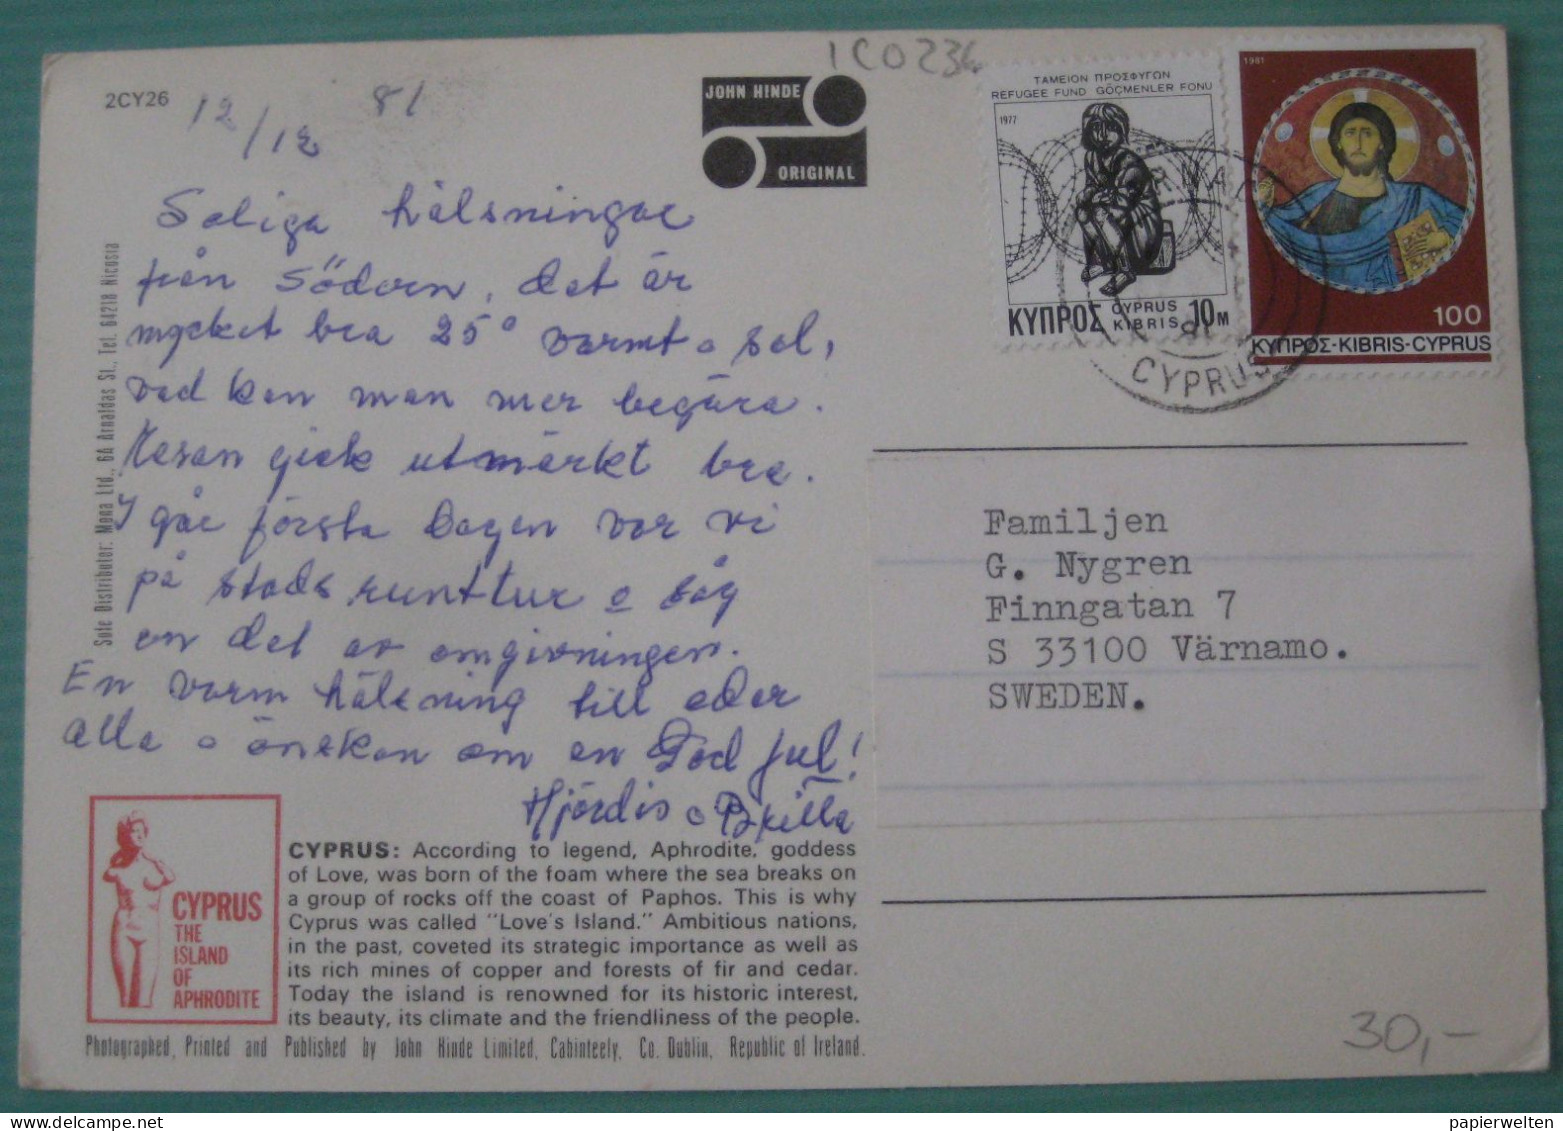 2CY26
12/12 81
JOHN HINDE
ORIGINAL
1CO234
ΤΑΜΕΙΟΝ ΠΡΟΣΦΥΓΩΝ
REFUGEE FUND GÖÇMENLER FONU
1977
ΚΥΠΡΟΣ CYPRUS KIBRIS 10 M
1981
100
ΚΥΠΡΟΣ-KIBRIS-CYPRUS
CYPRUS
Soliga hälsningar
från Södern, det är
mycket bra 25° varmt o sol,
vad kan man mer begära.
Resan gick utmärkt bra.
I går första dagen var vi
på stads runttur o såg
en del av omgivningen.
En varm hälsning till eder
alla o önskan om en God Jul!
Hjördis o
Familjen
G. Nygren
Finngatan 7
S 33100 Värnamo.
SWEDEN.
Sole Distributor: Mona Ltd., 6A Arnaldas St., Tel. 64218 Nicosia
CYPRUS
THE
ISLAND
OF
APHRODITE
CYPRUS: According to legend, Aphrodite, goddess
of Love, was born of the foam where the sea breaks on
a group of rocks off the coast of Paphos. This is why
Cyprus was called "Love's Island." Ambitious nations,
in the past, coveted its strategic importance as well as
its rich mines of copper and forests of fir and cedar.
Today the island is renowned for its historic interest,
its beauty, its climate and the friendliness of the people.
Photographed, Printed and Published by John Hinde Limited, Cabinteely, Co. Dublin, Republic of Ireland.
30,-
papierwelten